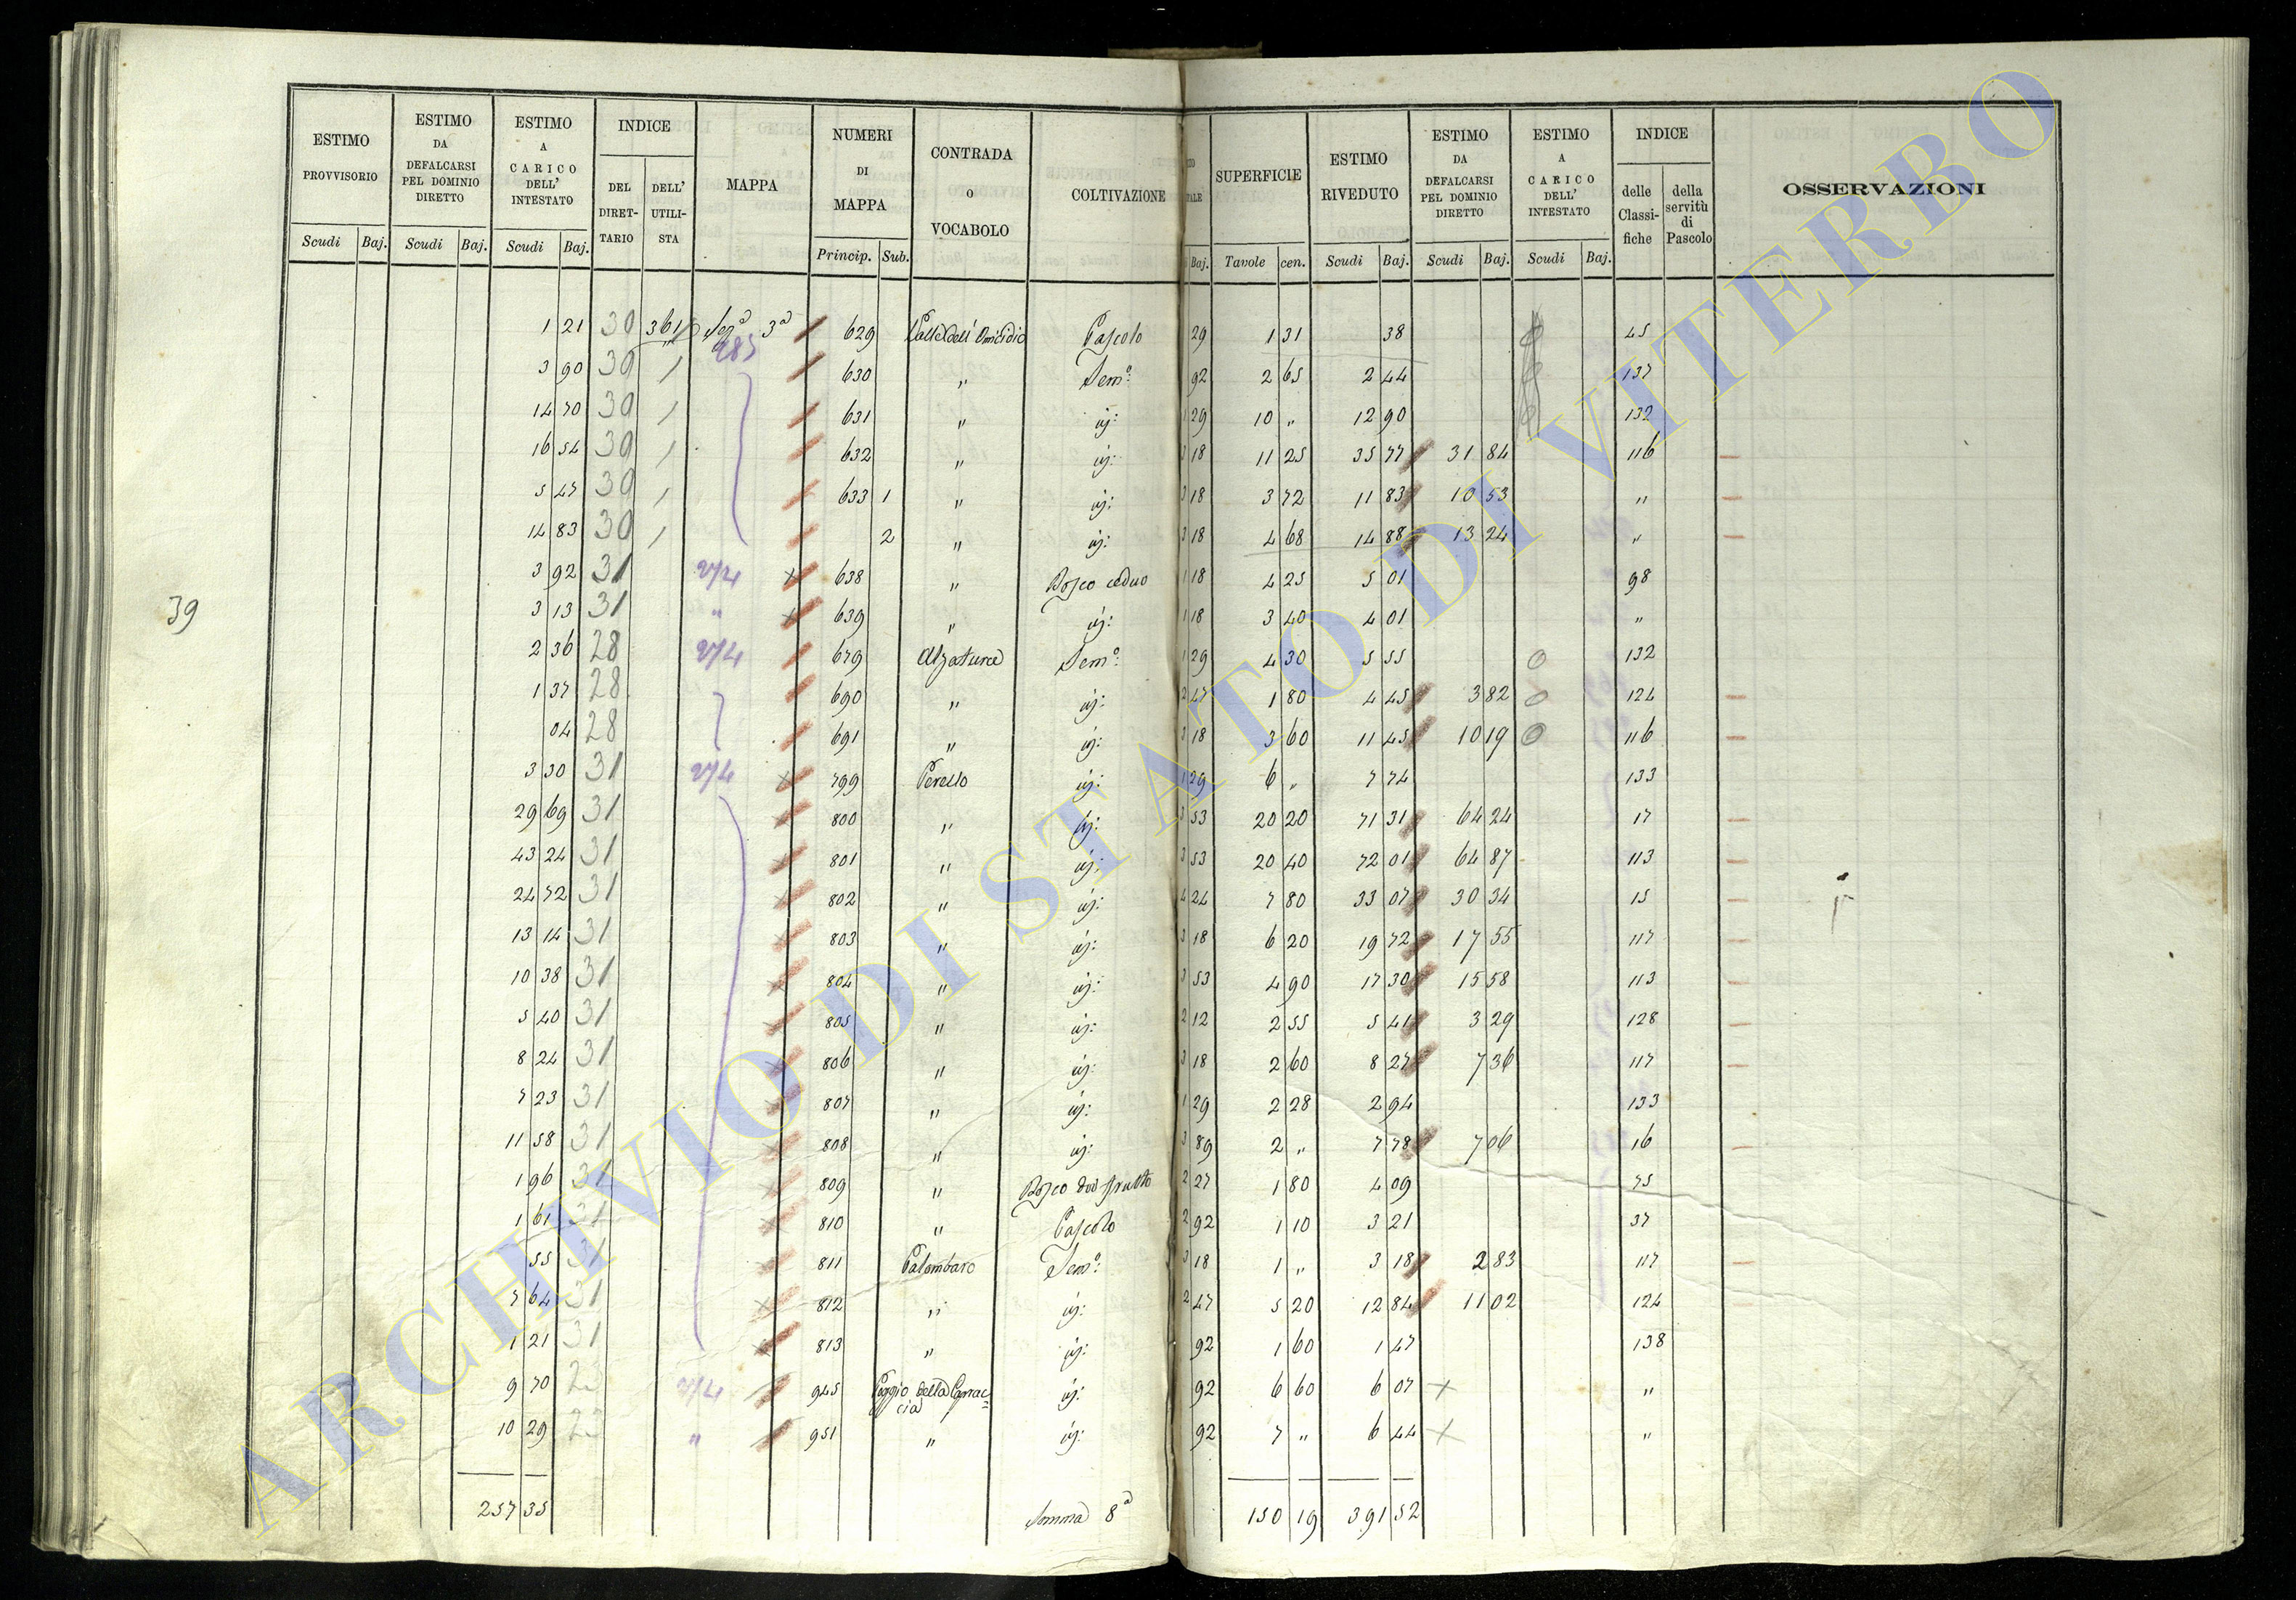 ESTIMO PROVVISORIO | ESTIMO DA DEFALCARSI PEL DOMINIO DIRETTO | ESTIMO A CARICO DELL' INTESTATO | INDICE DEL DIRETTARIO | DELL' UTILISTA | MAPPA | NUMERI DI MAPPA | CONTRADA o VOCABOLO | COLTIVAZIONE | SUPERFICIE | ESTIMO RIVEDUTO | ESTIMO DA DEFALCARSI PEL DOMINIO DIRETTO | ESTIMO A CARICO DELL' INTESTATO | INDICE delle Classifiche | della servitù di Pascolo | OSSERVAZIONI
Scudi Baj. Scudi Baj. Scudi Baj. Princip. Sub. Baj. Tavole cen. Scudi Baj. Scudi Baj. Scudi Baj.
1 21 30 361 Seg.a 3a 629 Pascolo 29 1 31 38 45
285
3 90 30 630 " Sem.o 92 2 65 2 44 137
14 70 30 631 " id: 1 29 10 " 12 90 132
16 54 30 632 " id: 3 18 11 25 35 77 31 84 116
5 47 30 633 1 " id: 3 18 3 72 11 83 10 53 "
14 83 30 2 " id: 3 18 4 68 14 88 13 24 "
3 92 31 274 638 " Bosco ceduo 1 18 4 25 5 01 98
39
3 13 31 " 639 " id: 1 18 3 40 4 01 "
2 36 28 274 679 Alzatura Sem.o 1 29 4 30 5 55 0 132
1 37 28 690 " id: 2 47 1 80 4 45 3 82 0 124
04 28 691 " id: 3 18 3 60 11 45 10 19 0 116
3 30 31 274 799 Perello id: 1 29 6 " 7 74 133
29 69 31 800 " id: 3 53 20 20 71 31 64 24 17
43 24 31 801 " id: 3 53 20 40 72 01 64 87 113
24 72 31 802 " id: 4 24 7 80 33 07 30 34 15
13 14 31 803 " id: 3 18 6 20 19 72 17 55 117
10 38 31 804 " id: 3 53 4 90 17 30 15 58 113
5 40 31 805 " id: 2 12 2 55 5 41 3 29 128
8 24 31 806 " id: 3 18 2 60 8 27 7 36 117
7 23 31 807 " id: 1 29 2 28 2 94 133
11 58 31 808 " id: 3 89 2 " 7 78 7 06 16
1 96 31 809 " Bosco frutto 2 27 1 80 4 09 75
1 61 31 810 " Pascolo 2 92 1 10 3 21 37
55 31 811 Palombaro Sem.o 3 18 1 " 3 18 2 83 117
7 64 31 812 " id: 2 47 5 20 12 84 11 02 124
1 21 31 813 " id: 92 1 60 1 47 138
9 70 945 Poggio della id: 92 6 60 6 07 + "
10 29 " 951 " id: 92 7 " 6 44 + "
257 35 Somma 8a 150 19 391 52
ARCHIVIO DI STATO DI VITERBO